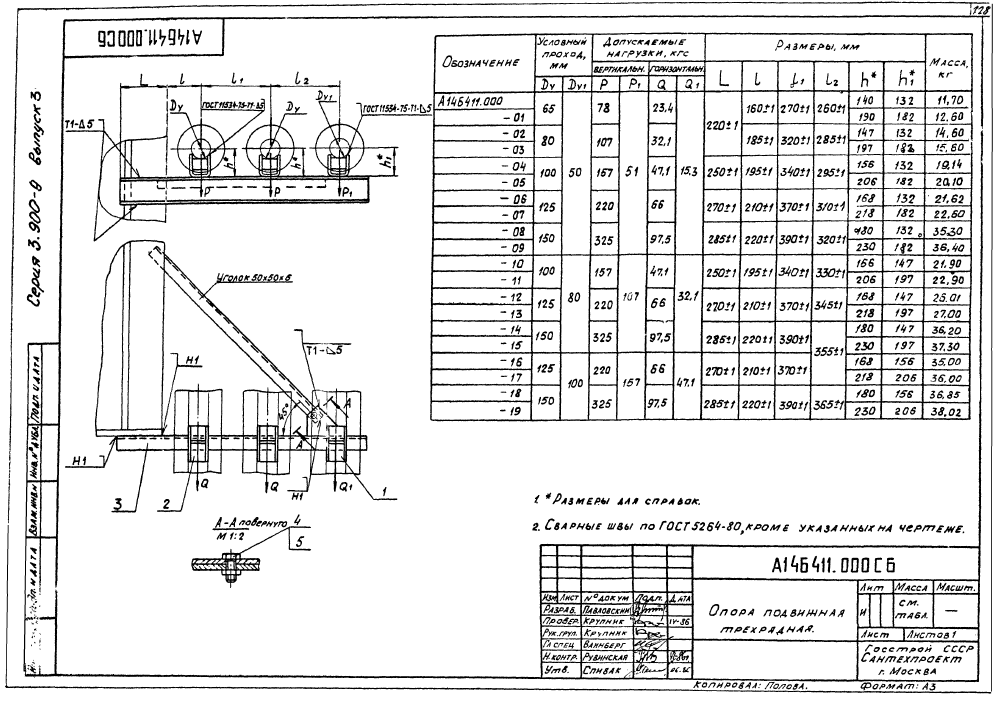 128
А14Б411.000СБ
Серия 3.900-9 Выпуск 3
L l l1 l2
Dу ГОСТ 11534-75-Т1-⊿5 Dу Dу1 ГОСТ 11534-75-Т1-⊿5
Т1-⊿5
h* h* h1*
P P P1
Уголок 50х50х6
Т1-⊿5
Н1
45°
А
А
Н1
Н1
Q Q Q1
3 2 1
А-А повернуто 4
М 1:2 5
Обозначение Условный проход, мм Допускаемые нагрузки, кгс Размеры, мм Масса, кг
вертикальн. горизонтальн.
Dу Dу1 P P1 Q Q1 L l l1 l2 h* h1*
А14Б411.000 65 50 78 51 23.4 15.3 220±1 160±1 270±1 260±1 140 132 11,70
- 01 190 182 12.60
- 02 80 107 32,1 185±1 320±1 285±1 147 132 14,60
- 03 197 182 15,60
- 04 100 157 47,1 250±1 195±1 340±1 295±1 156 132 19,14
- 05 206 182 20,10
- 06 125 220 66 270±1 210±1 370±1 310±1 168 132 21,62
- 07 218 182 22,60
- 08 150 325 97,5 285±1 220±1 390±1 320±1 180 132 35,30
- 09 230 182 36,40
- 10 100 80 157 107 47,1 32,1 250±1 195±1 340±1 330±1 166 147 21,90
- 11 206 197 22,90
- 12 125 220 66 270±1 210±1 370±1 345±1 168 147 25,01
- 13 218 197 27,00
- 14 150 325 97,5 285±1 220±1 390±1 355±1 180 147 36,20
- 15 230 197 37,30
- 16 125 100 220 157 66 47,1 270±1 210±1 370±1 168 156 35,00
- 17 218 206 36,00
- 18 150 325 97,5 285±1 220±1 390±1 365±1 180 156 36,85
- 19 230 206 38,02
1. * Размеры для справок.
2. Сварные швы по ГОСТ 5264-80, кроме указанных на чертеже.
А14Б411.000СБ
Изм Лист № докум Подп. Дата
Разраб. Павловский
Провер. Крупник IV-86
Рук.груп. Крупник
Гл спец Вайнберг
Н.контр. Рубинская
Утв. Спивак
Опора подвижная трехрядная.
Лит Масса Масшт.
И см. табл. —
Лист Листов 1
Госстрой СССР
Сантехпроект
г. Москва
Копировал: Попова. Формат: А3
Подп. и дата
Инв.№ дубл
Взам.инв№